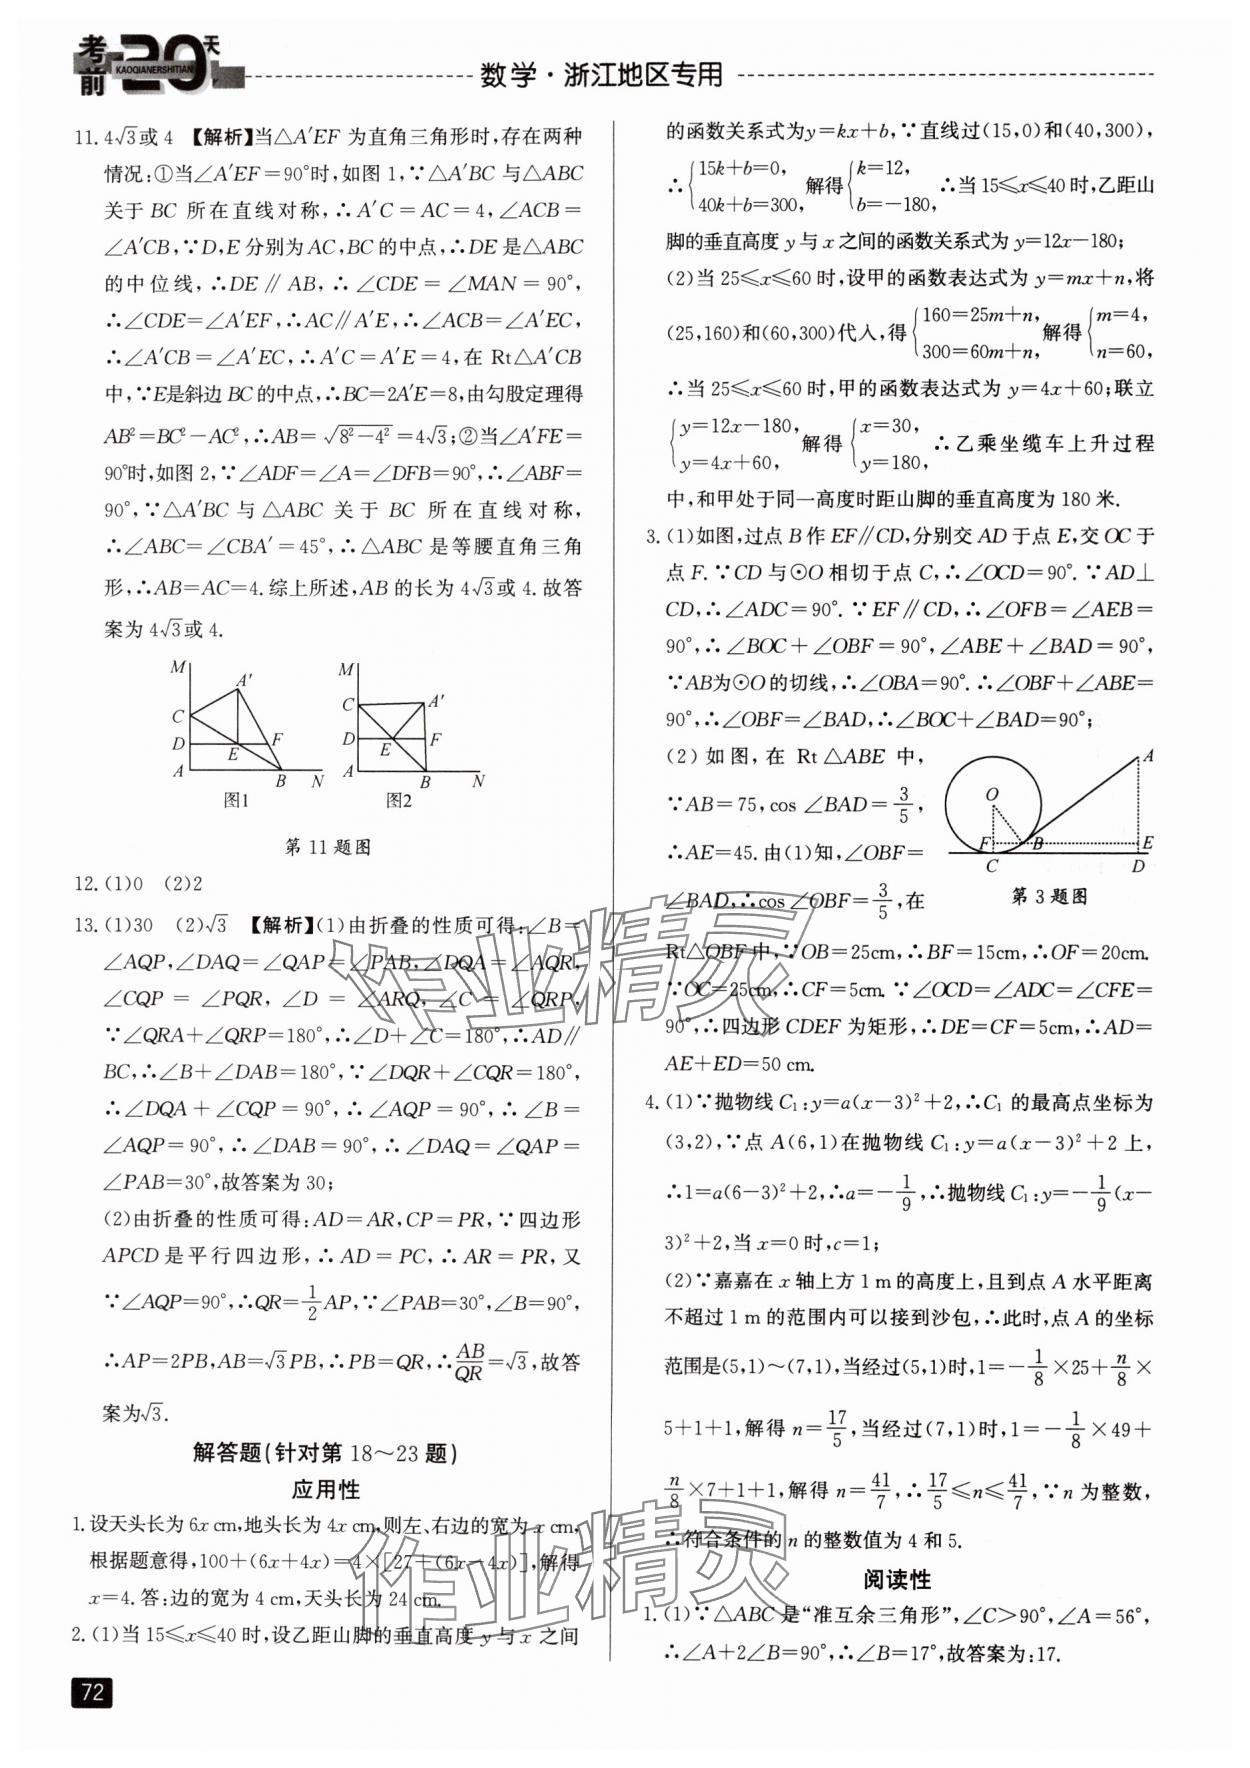 考前20天
KAOQIANERSHITIAN
数学·浙江地区专用
11. 4√3或 4 【解析】当△A′EF 为直角三角形时,存在两种
情况:①当∠A′EF=90°时,如图 1,∵△A′BC 与△ABC
关于 BC 所在直线对称,∴A′C=AC=4,∠ACB=
∠A′CB,∵D,E 分别为 AC,BC 的中点,∴DE 是△ABC
的中位线,∴DE∥AB,∴∠CDE=∠MAN=90°,
∴∠CDE=∠A′EF,∴AC∥A′E,∴∠ACB=∠A′EC,
∴∠A′CB=∠A′EC,∴A′C=A′E=4,在 Rt△A′CB
中,∵E是斜边 BC 的中点,∴BC=2A′E=8,由勾股定理得
AB²=BC²-AC²,∴AB=√(8²-4²)=4√3;②当∠A′FE=
90°时,如图 2,∵∠ADF=∠A=∠DFB=90°,∴∠ABF=
90°,∵△A′BC 与△ABC 关于 BC 所在直线对称,
∴∠ABC=∠CBA′=45°,∴△ABC 是等腰直角三角
形,∴AB=AC=4. 综上所述,AB 的长为 4√3或 4. 故答
案为 4√3或 4.
M C D A A′ E F B N
图1
M C D A A′ E F B N
图2
第 11 题图
12. (1)0 (2)2
13. (1)30 (2)√3 【解析】(1)由折叠的性质可得:∠B=
∠AQP,∠DAQ=∠QAP=∠PAB,∠DQA=∠AQR,
∠CQP=∠PQR,∠D=∠ARQ,∠C=∠QRP,
∵∠QRA+∠QRP=180°,∴∠D+∠C=180°,∴AD∥
BC,∴∠B+∠DAB=180°,∵∠DQR+∠CQR=180°,
∴∠DQA+∠CQP=90°,∴∠AQP=90°,∴∠B=
∠AQP=90°,∴∠DAB=90°,∴∠DAQ=∠QAP=
∠PAB=30°,故答案为 30;
(2)由折叠的性质可得:AD=AR,CP=PR,∵四边形
APCD 是平行四边形,∴AD=PC,∴AR=PR,又
∵∠AQP=90°,∴QR=1/2 AP,∵∠PAB=30°,∠B=90°,
∴AP=2PB,AB=√3PB,∴PB=QR,∴AB/QR=√3,故答
案为√3.
解答题(针对第 18~23 题)
应用性
1. 设天头长为 6x cm,地头长为 4x cm,则左、右边的宽为 x cm,
根据题意得,100+(6x+4x)=4×[27+(6x-4x)],解得
x=4. 答:边的宽为 4 cm,天头长为 24 cm.
2. (1)当 15≤x≤40 时,设乙距山脚的垂直高度 y 与 x 之间
72
的函数关系式为y=kx+b,∵直线过(15,0)和(40,300),
∴{15k+b=0, 40k+b=300, 解得{k=12, b=-180, ∴当 15≤x≤40 时,乙距山
脚的垂直高度 y 与 x 之间的函数关系式为 y=12x-180;
(2)当 25≤x≤60 时,设甲的函数表达式为 y=mx+n,将
(25,160)和(60,300)代入,得{160=25m+n, 300=60m+n, 解得{m=4, n=60,
∴当 25≤x≤60 时,甲的函数表达式为 y=4x+60;联立
{y=12x-180, y=4x+60, 解得{x=30, y=180, ∴乙乘坐缆车上升过程
中,和甲处于同一高度时距山脚的垂直高度为 180 米.
3. (1)如图,过点 B 作 EF∥CD,分别交 AD 于点 E,交 OC 于
点 F. ∵CD 与⊙O 相切于点 C,∴∠OCD=90°. ∵AD⊥
CD,∴∠ADC=90°. ∵EF∥CD,∴∠OFB=∠AEB=
90°,∴∠BOC+∠OBF=90°,∠ABE+∠BAD=90°,
∵AB为⊙O的切线,∴∠OBA=90°. ∴∠OBF+∠ABE=
90°,∴∠OBF=∠BAD,∴∠BOC+∠BAD=90°;
(2)如图,在 Rt△ABE 中,
∵AB=75,cos∠BAD=3/5,
∴AE=45. 由(1)知,∠OBF=
∠BAD,∴cos∠OBF=3/5,在
O A F B E C D
第 3 题图
Rt△OBF中,∵OB=25cm,∴BF=15cm,∴OF=20cm.
∵OC=25cm,∴CF=5cm. ∵∠OCD=∠ADC=∠CFE=
90°,∴四边形 CDEF 为矩形,∴DE=CF=5cm,∴AD=
AE+ED=50 cm.
4. (1)∵抛物线 C₁:y=a(x-3)²+2,∴C₁ 的最高点坐标为
(3,2),∵点 A(6,1)在抛物线 C₁:y=a(x-3)²+2 上,
∴1=a(6-3)²+2,∴a=-1/9,∴抛物线 C₁:y=-1/9(x-
3)²+2,当 x=0 时,c=1;
(2)∵嘉嘉在 x 轴上方 1 m 的高度上,且到点 A 水平距离
不超过 1 m 的范围内可以接到沙包,∴此时,点 A 的坐标
范围是(5,1)~(7,1),当经过(5,1)时,1=-1/8×25+n/8×
5+1+1,解得 n=17/5,当经过(7,1)时,1=-1/8×49+
n/8×7+1+1,解得 n=41/7,∴17/5≤n≤41/7,∵n 为整数,
∴符合条件的 n 的整数值为 4 和 5.
阅读性
1. (1)∵△ABC 是“准互余三角形”,∠C>90°,∠A=56°,
∴∠A+2∠B=90°,∴∠B=17°,故答案为:17.
作业精灵
作业精灵